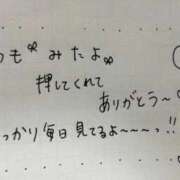 つも🎀みたよ🎀
押してくれて
ありがとう〜
っかり毎日見てるよ〜〜〜っ!!